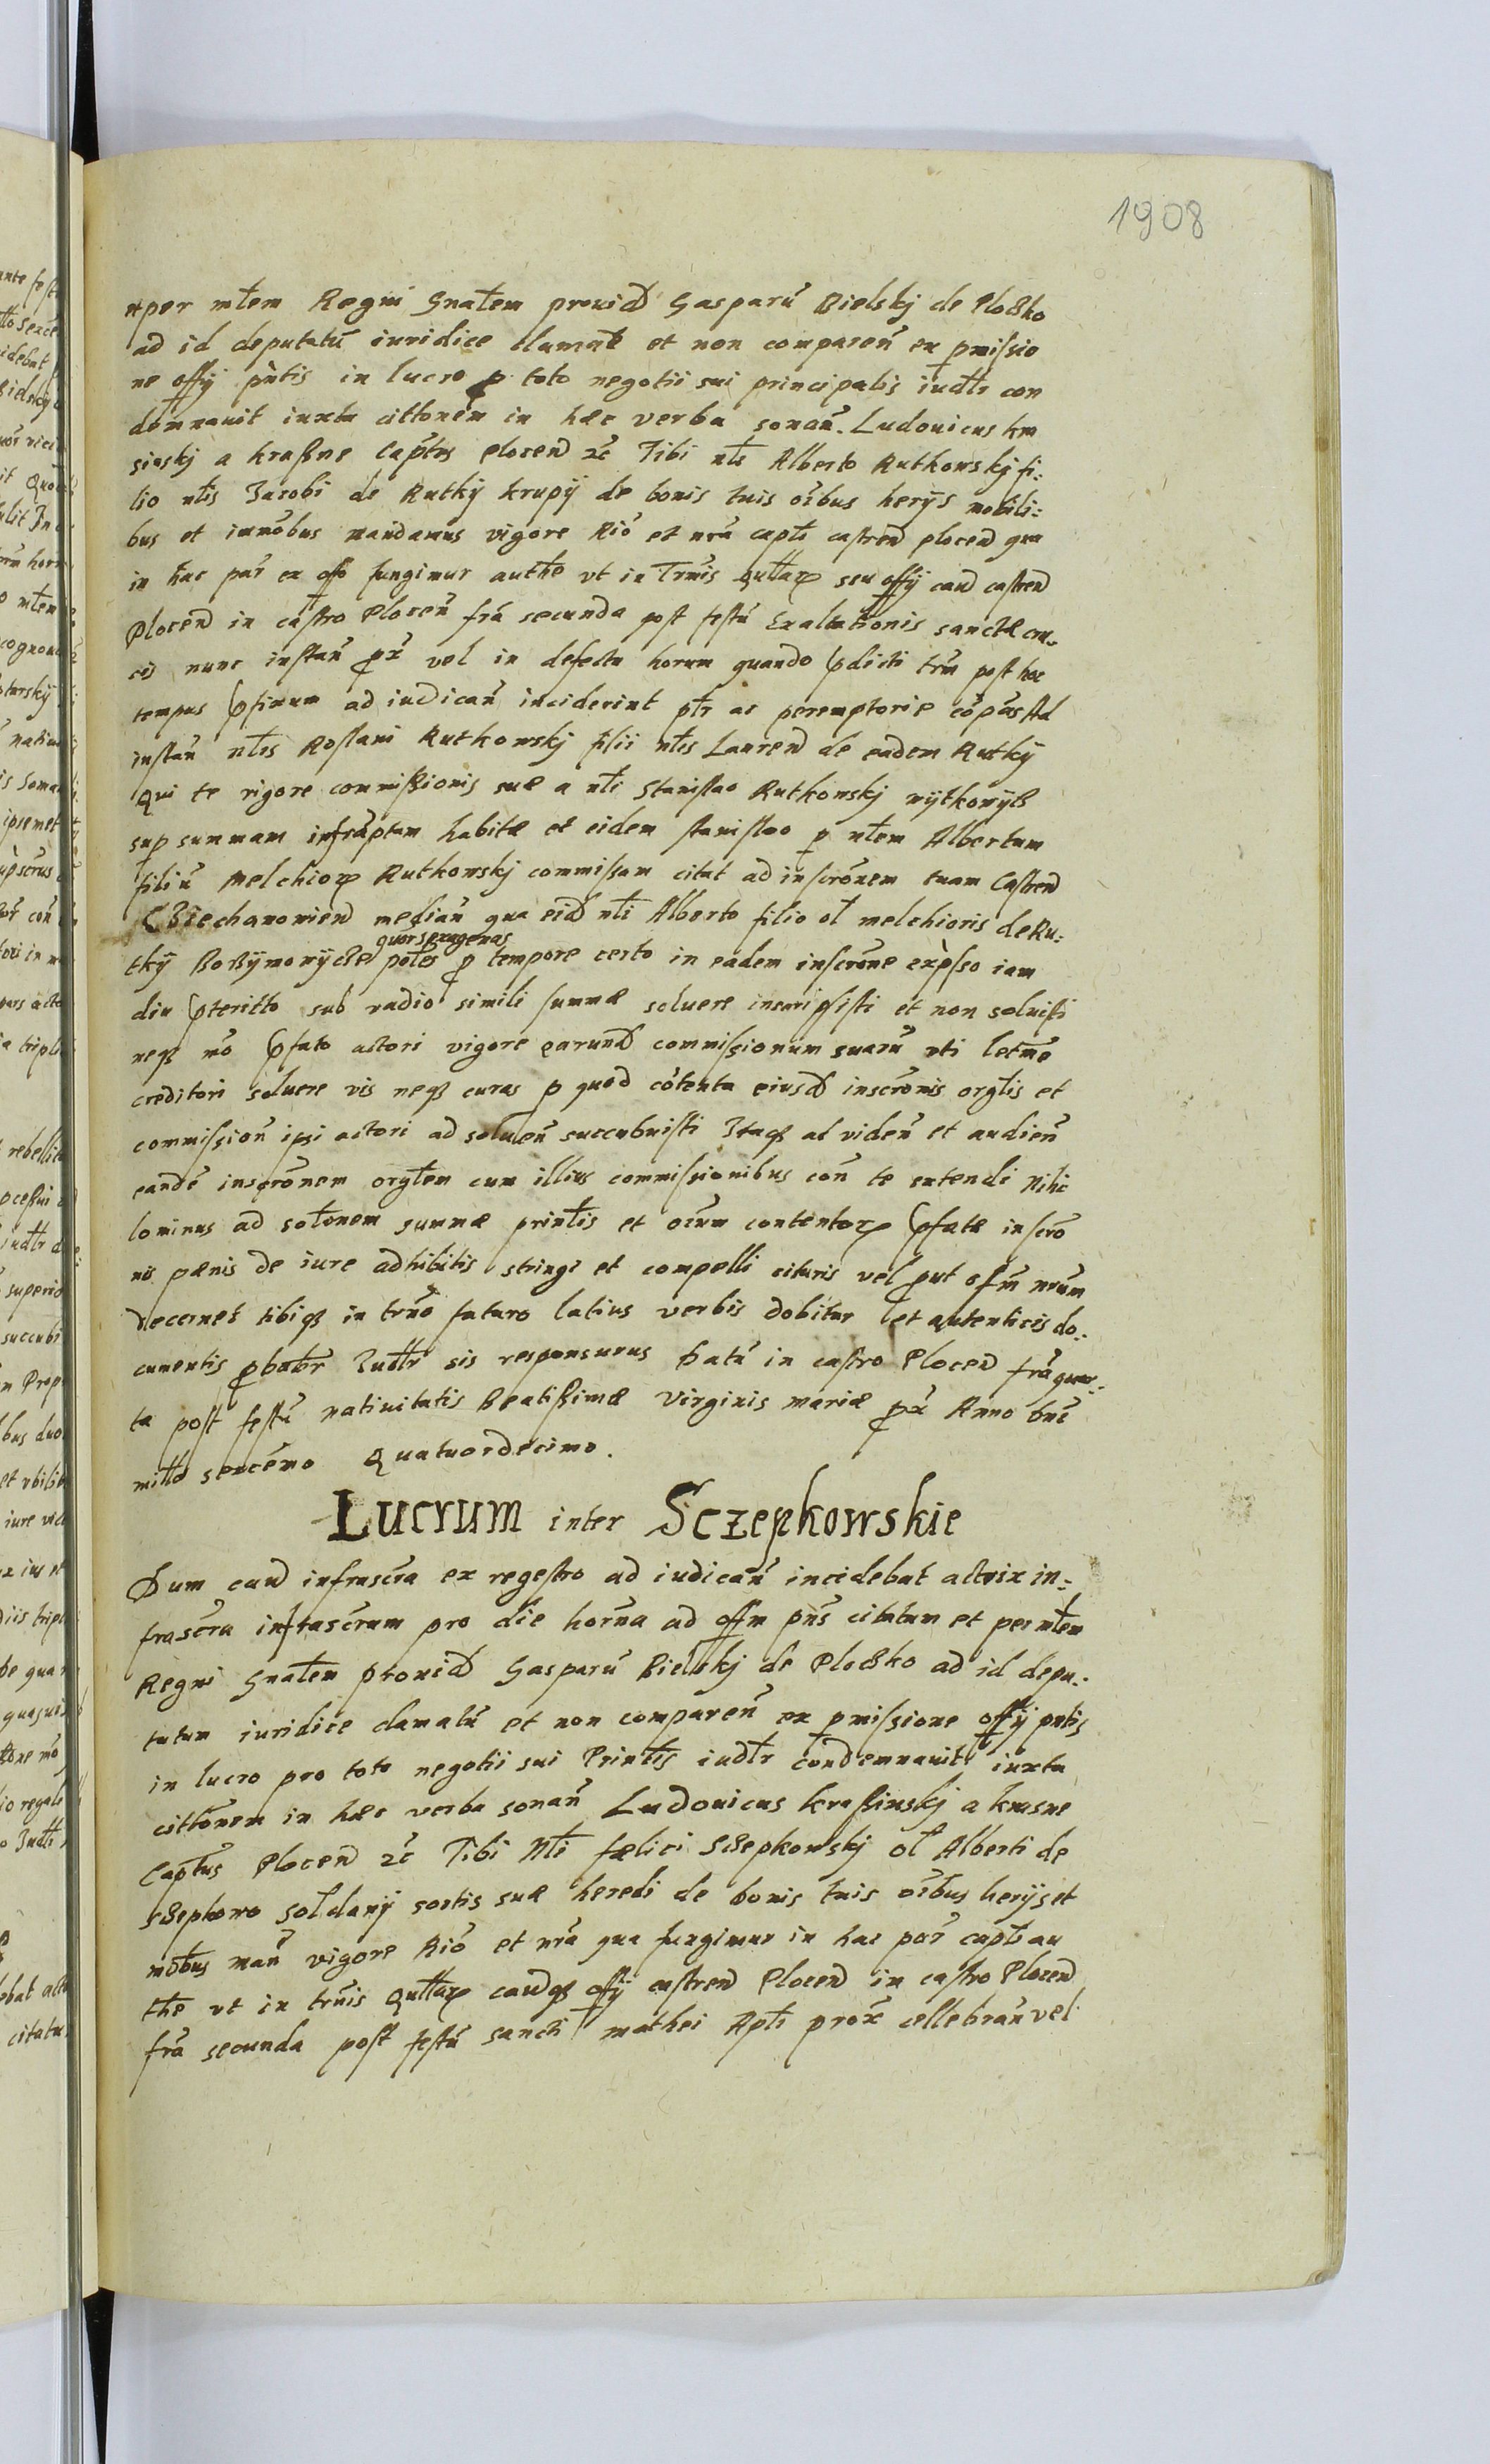 1908
et per mtem Regni Gnałem prouid Gasparū Bielskj de Ploczko
ad id deputatū iuridice clamatū et non compareñ ex pmissio
ne offij pñtis in lucro p toto negotii sui principalis iudlr con
demnauit iuxta cittonem in hæc verba sonañ. Ludouicus kra
sinskj a kraßne Captus plocen etc Tibi nli Alberto Rutkowskj fi:
lio nlis Jacobi de Rutkij krupij de bonis tuis oĩbus herijs mobili:
bus et immobus mandamus vigore Rio et nra capti castren plocen qua
in hac par ex offo fungimur authe vt in Trmis qullarx seu offij cand castren
Plocen in castro Plocen fra secunda post festū Exaltationis sanctæ cru..
cis nunc instañ px vel in defectu horum quando pdicti trmi post hoc
tempus pfinum ad iudicañ inciderint ptr ac peremptorie cōpas Ad
instañ nlis Roslani Rutkowskj filii nlis Lauren de eadem Rutkij
Qui te vigore commißionis suæ a nli Stanislao Rutkowskj
sup summam infraptam habitæ et eidem stanislao p nlem Albertum
filiū Melchiorx Rutkowskj commissam citat ad inscrōnem tuam Castren
Ciechanowien mediañ qua eid nli Alberto filio ol melchioris de Ru:
quorsexagenas
tkij p tempore certo in eadem inscrōne expsso iam
diu pteritto sub vadio simili summæ soluere inscripsisti et non soluisti
neq mō pfato actori vigore earund commissionum suarū vti letmo
creditori soluere vis neq curas p quod cōtenta eiusd inscrōnis orglis et
commissioñ ipi actori ad solueñ succubuisti Itaq ad videñ et audieñ
eandē inscrōnem orglem cum illius commissionibus coñ te extendi Nihi
lominus ad sołonem summæ prinlis et oĩum contentorx pfatæ inscrō
nis pænis de iure adhibitis stringi et compelli cituris vel put offm nrum
decernet tibiq in trno futuro latius verbis dobitur et autenticis do..
cumentis pbabr Iudlr sis responsurus Datū in castro Plocen fra quar..
ta post festū natiuitatis Beatißimæ Virginis mariæ px Anno dni
millo sexcēmo Quatuordecimo.
Lucrum inter Sczepkowskie
Dum caud infrascra ex regestro ad iudicañ incidebat actrix in:
frascra infrascrum pro die horna ad offm pns citatum et per mtem
Regni Gnałem prouid Gasparū Bielskj de Ploczko ad id depu..
tatum iuridice clamatū et non compareñ ex pmissione offij pntis
in lucro pro toto negotii sui Prinlis iudlr condemnauit iuxta
cittonem in hæc verba sonañ Ludouicus kraßinskj a krasne
Captus Plocen etc Tibi Nli fælici Sczepkowskj ol Alberti de
sczepkowo soldanij sortis suæ heredi de bonis tuis oĩbus herijs et
mobus mañ vigore Rio et nra qua fungimur in hac par capti au
the vt in trmis qullarx caudq offij castren Plocen in castro Plocen
fra secunda post festū sancti mathei Apli prox cellebrañ vel